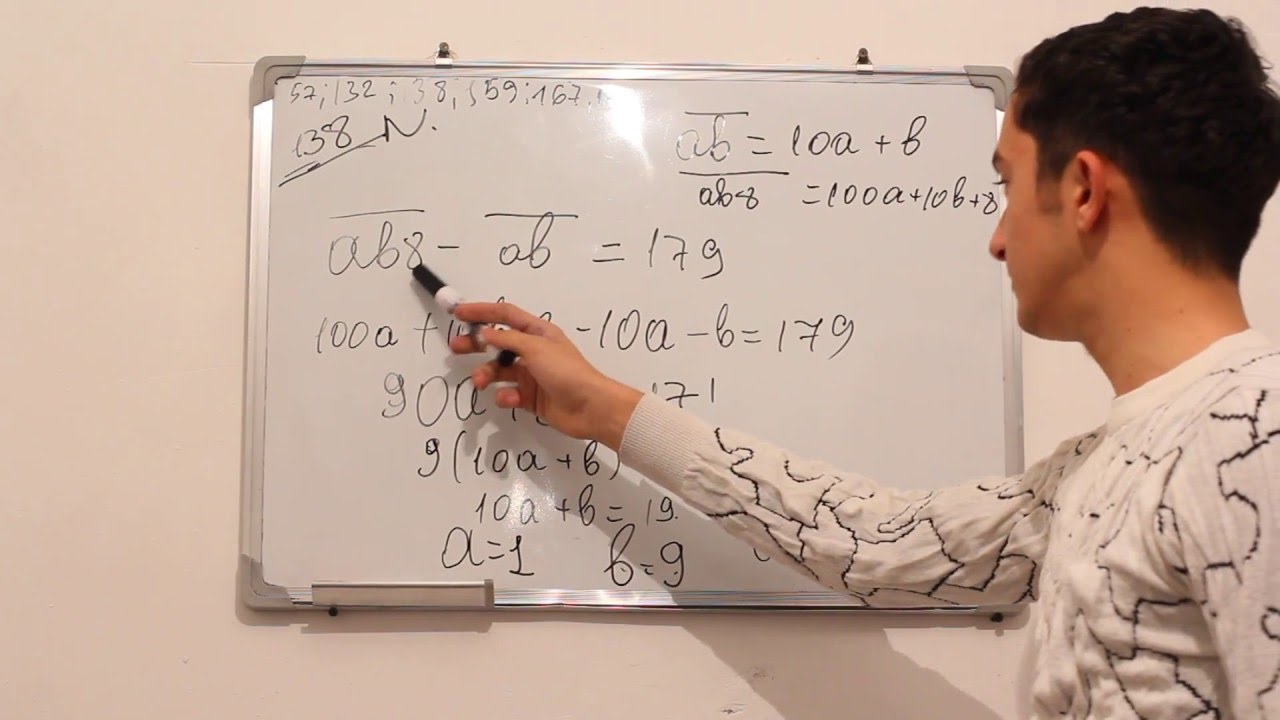 57; 132; 138; 159; 167,
138 N.
ab = 10a + b
ab8 = 100a+10b+8
ab8 - ab = 179
100a + -10a - b = 179
90a + 171
9(10a + b)
10a + b = 19.
a=1 b=9